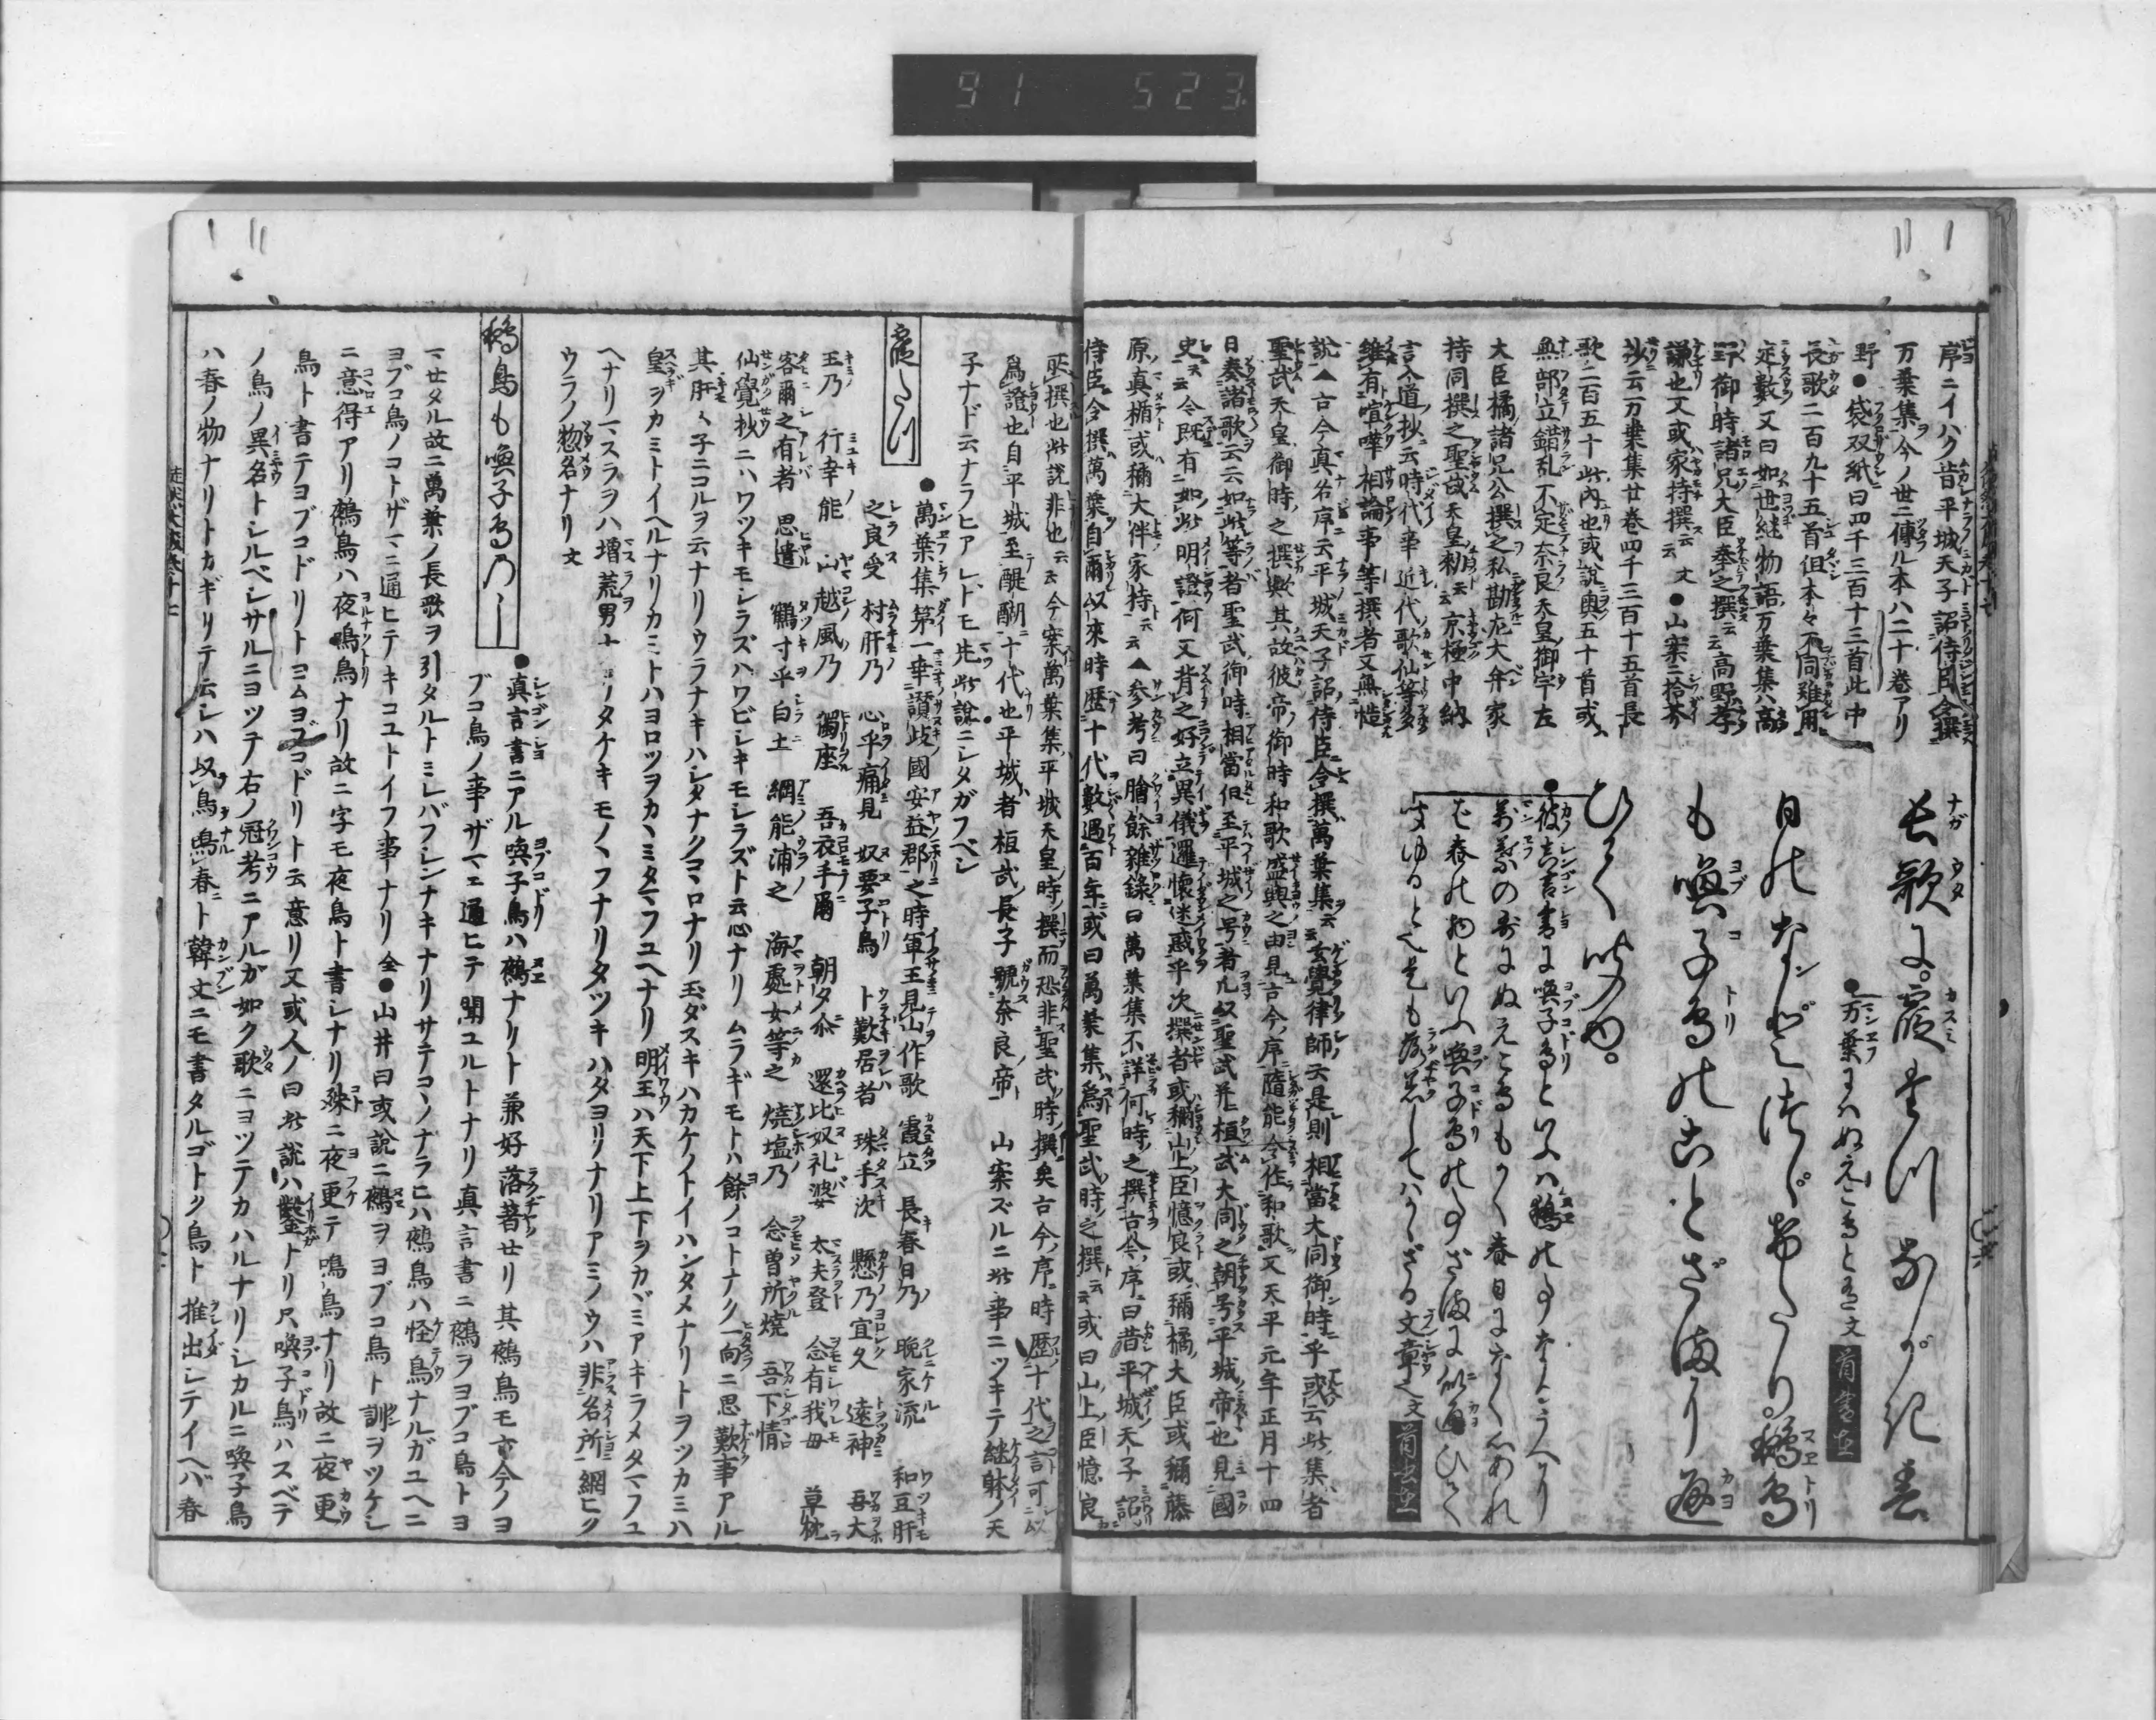 91 523
序ニイハク昔平城天子詔侍臣令撰
万葉集今ノ世ニ傳ル本八二十巻アリ
野●袋双紙曰四千三百十三首此中
長歌二百九十五首但本々不同難用
定數又曰如世継物語万葉集ハ高
野御時諸兄大臣奉之撰云高野孝
謙也又或家持撰云云文●山案ニ拾芥
抄云万葉集廿巻四千三百十五首長
歌二百五十此内也或說奥五十首或
無部立錯乱不定奈良天皇御宇左
大臣橘諸兄公撰之私勘左大弁家
持同撰之聖武天皇勅云云京極中納
言入道抄云時代事近代歌仙等多
雖有喧嘩相論事等撰者又無慥
說▲古今真名序云平城天子詔侍臣令撰萬葉集云云玄覺律師云是則相當大同御時乎或云此集者
聖武天皇御時之撰歟其故彼帝御時和歌盛興之由見古今序隨能令作和歌又天平元年正月十四
日奏諸歌云云如此等者聖武御時相當但至平城之号者凡奴聖武并桓武大同之朝号平城帝也見國
史云云今既有如此明證何又背之好立異儀邏懐迷惑乎次撰者或稱山上臣憶良或稱橘大臣或稱藤
原真楯或稱大伴家持云云▲参考曰膾餘雜録曰萬葉集不詳何時之撰古今序曰昔平城天子詔
侍臣令撰萬葉自爾以來時歴十代數過百年或曰萬葉集爲聖武時之撰云云或曰山上臣憶良
長歌に。霞たつながき春
●万葉にはぬえこ鳥と有文 首書ニ
日のなどつゞけたり。鵺鳥
も喚子鳥のことざまに通
ひてきこゆ。
●彼真言書に喚子鳥といふハ鵺の事なりとうへり
万葉の哥にぬえこ鳥もかく春日になく心あれ
ば春の物といふ喚子鳥の事ざまに似通ひて
きこゆると也是も落着してハかゝざる文章也文 首書ニ
所撰也此說非也云云今案萬葉集平城天皇時撰而恐非聖武時撰矣古今序時歴十代之言可以
爲證也自平城至醍醐十代也平城者桓武長子號奈良帝 山案ズルニ此事ニツキテ継躰ノ天
子ナド云ナラヒアレドモ先此說ニシタガフベシ
霞たつ
●萬葉集第一幸讚岐國安益郡之時軍王見山作歌 霞立 長春日乃 晩家流 和豆肝
之良受 村肝乃 心乎痛見 奴要子鳥 卜歎居者 珠手次 懸乃宜久 遠神 吾大
王乃 行幸能 山越風乃 獨座 吾衣手爾 朝夕尒 還比奴礼婆 太夫登 念有我母 草枕
客爾之有者 思遣 鶴寸乎白土 綱能浦之 海處女等之 燒塩乃 念曽所燒 吾下情
仙覺抄ニハワツキモシラズハワビシキモシラズト云心ナリ ムラギモトハ餘ノコトナク一向ニ思歎事アル
其肝々子ニコルヲ云ナリウラナキハシタナクコヽロナリ玉ダスキハカケノトイハンタメナリトヲツカミハ
皇ヲカミトイヘルナリカミトハヨロツヲカヽミタマフユヘナリ明王ハ天下上下ヲカヾミアキラメタマフユ
ヘナリマスラヲハ増荒男ナリタケキモノヽフナリタツキハタヨリナリアミノウハ非名所網ヒク
ウラノ惣名ナリ文
鵺鳥も喚子鳥の〳〵
●真言書ニアル喚子鳥ハ鵺ナリト兼好落著セリ其鵺鳥モ亦今ノヨ
ブコ鳥ノ事ザマニ通ヒテ聞ユルトナリ真言書ニ鵺ヲヨブコ鳥トヨ
マセタル故ニ萬葉ノ長歌ヲ引タルトミレバフシンナキナリサテコヽノナラヒハ鵺鳥ハ怪鳥ナルガユヘニ
ヨブコ鳥ノコトザマニ通ヒテキコユトイフ事ナリ全●山井曰或說ニ鵺ヲヨブコ鳥ト訓ヲツケシ
ニ意得アリ鵺鳥ハ夜鳴鳥ナリ故ニ字モ夜鳥ト書シナリ殊ニ夜更テ鳴鳥ナリ故ニ夜更
鳥ト書テヨブコドリトヨムヨブコドリト云意リ又或人ノ曰此說ハ鑿トリ只喚子鳥ハスベテ
ノ鳥ノ異名トシルベシサルニヨツテ右ノ冠考ニアルガ如ク歌ニヨツテカハルナリシカルニ喚子鳥
ハ春ノ物ナリトカギリテ云シハ以鳥鳴春ト韓文ニモ書タルゴトク鳥ト推出シテイヘバ春